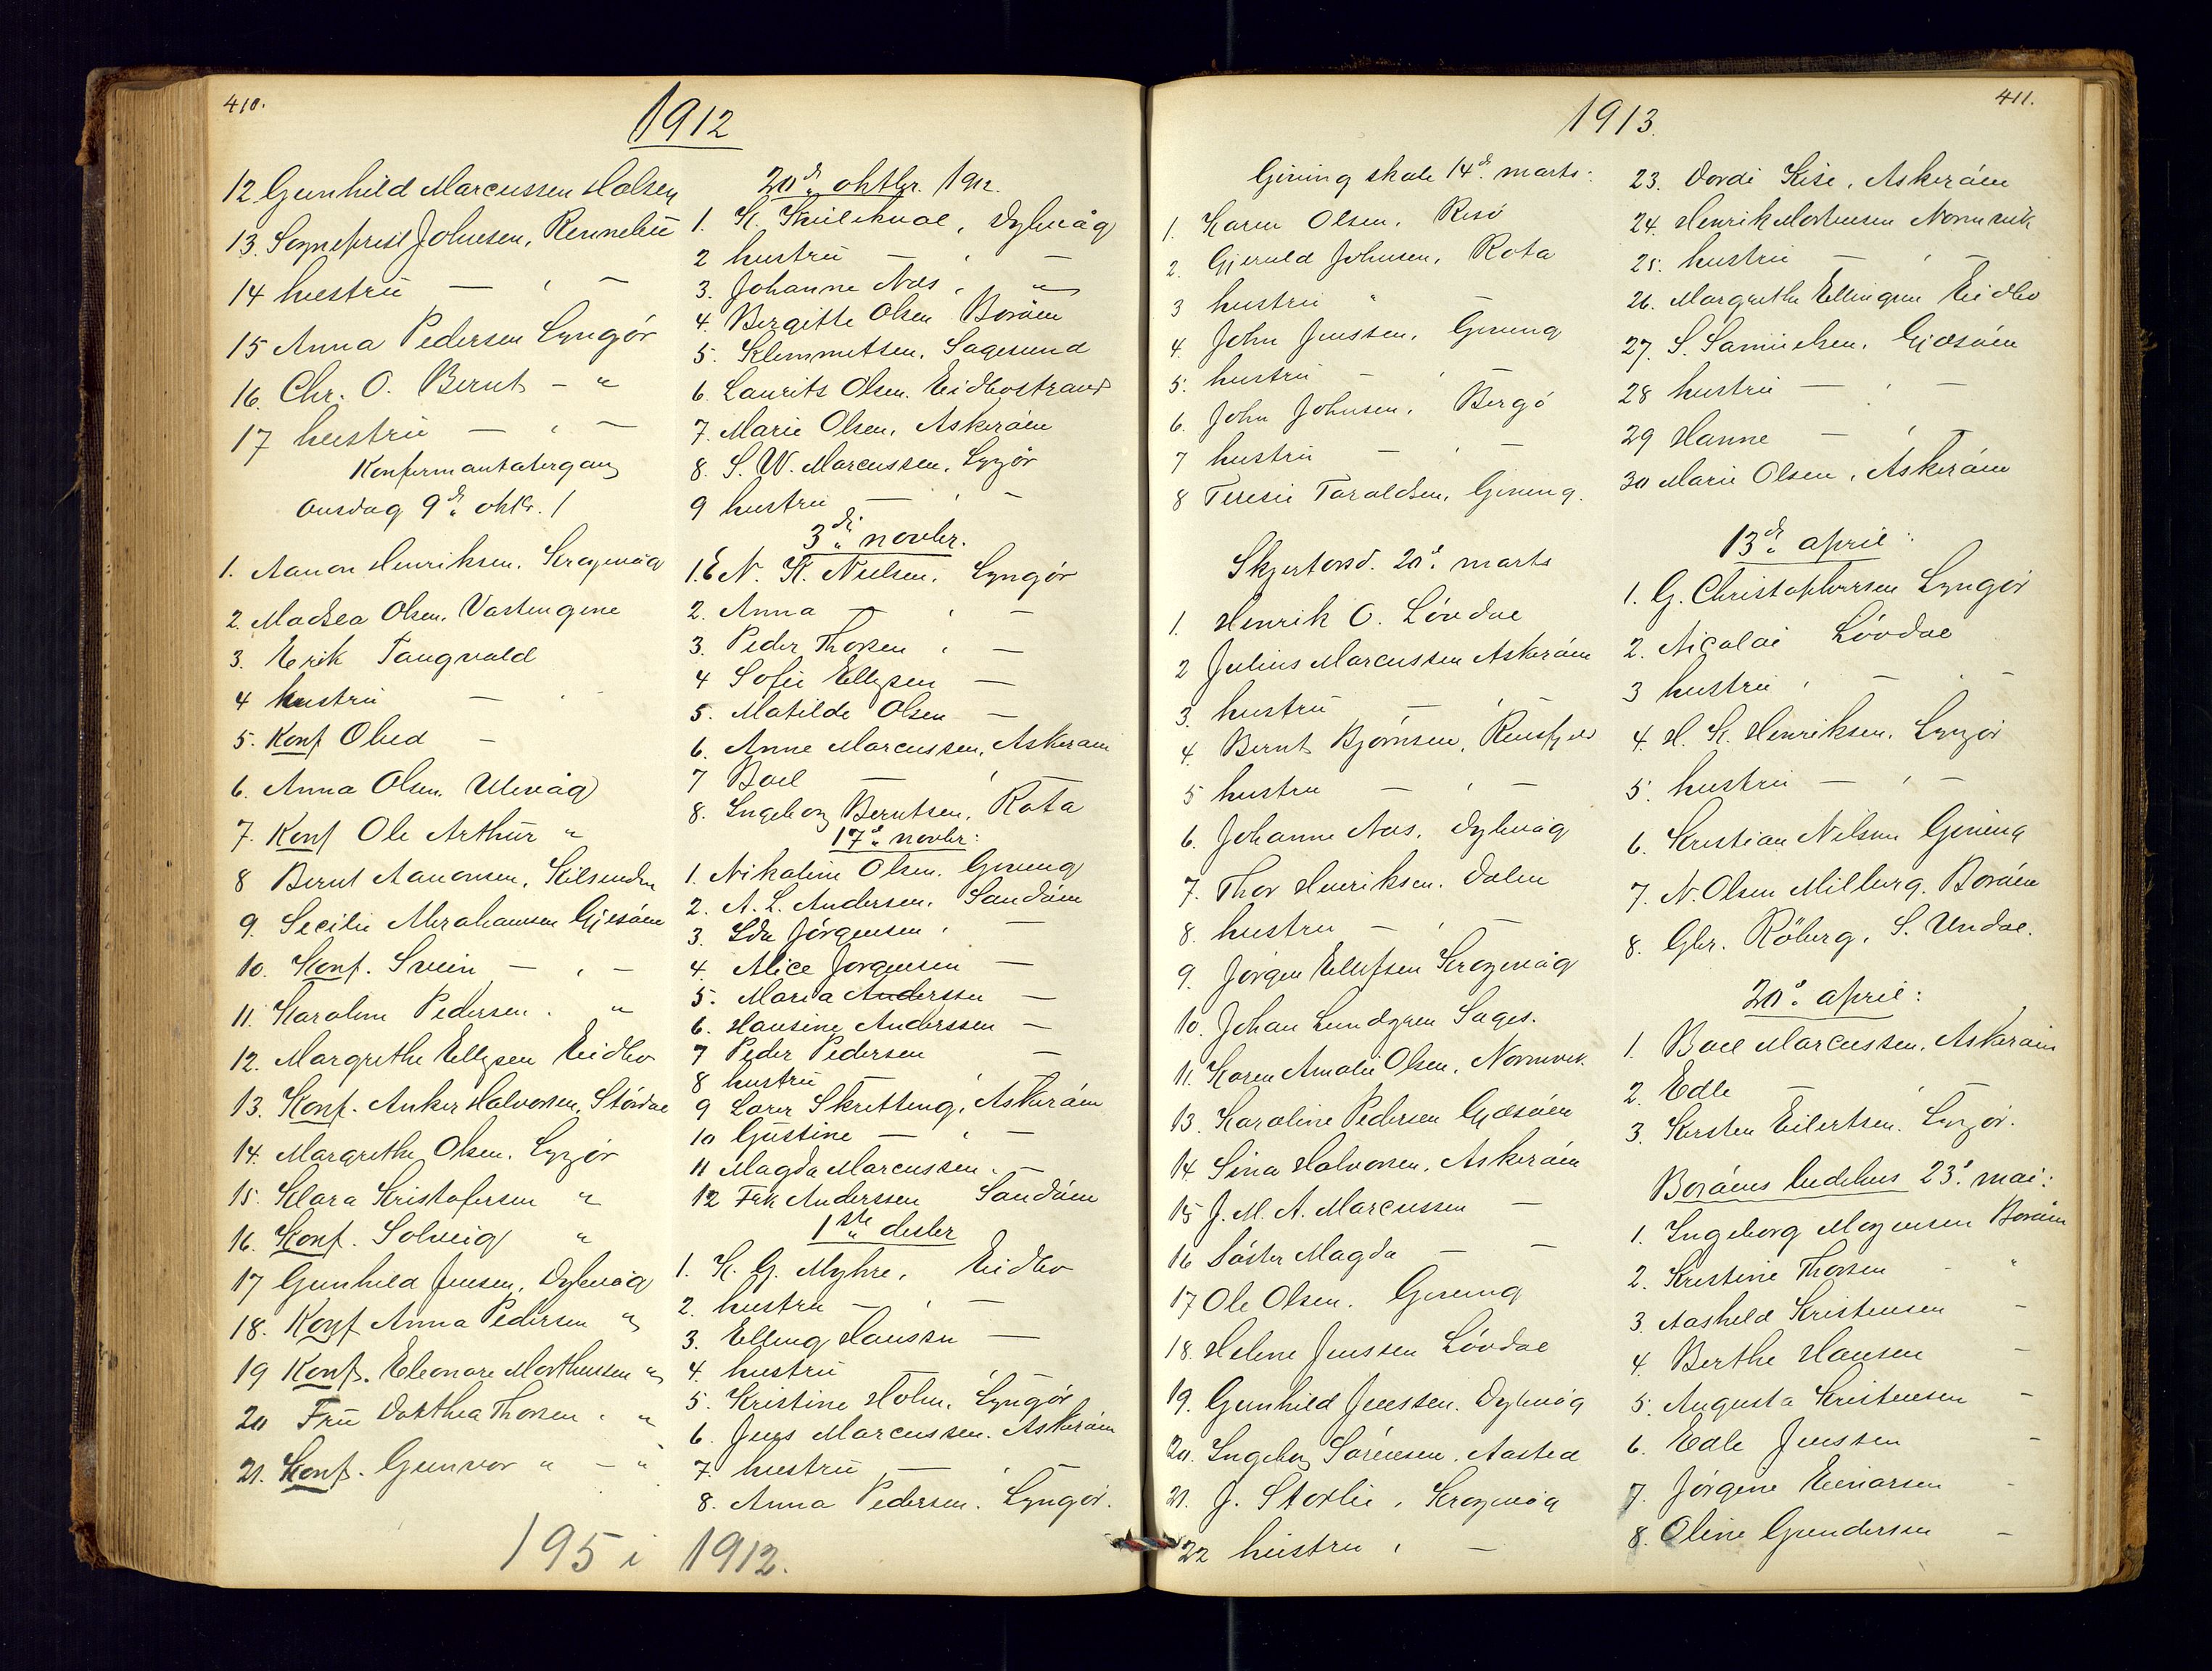 410.
1912
12 Gunhild Marcussen Holsen
13. Sogneprest Johnsen, Rennebu
14 hustru — , —
15 Anna Pedersen Lyngör
16. Chr. O. Bernt - "
17 hustru — , —
Konfirmantatergang
onsdag 9de oktbr. /
1. Aanon Henriksen. Kragevåg
2. Madsea Olsen. Vastengene
3. Erik Tangvald
4 hustru — , -
5. Konf Obed —
6. Anna Olsen Ulevåg
7. Konf Ole Arthur "
8 Bernt Aanonsen,
9. Secilie Abrahamsen Gjesöen
10. Konf. Svein — , —
11. Karoline Pedersen . "
12. Margrethe Ellysen Eidbo
13. Konf. Anker Halvorsen, Stördal
14. Margrethe Olsen. Lyngör
15. Klara Kristofersen "
16. Konf. Solveig "
17 Gunhild Jensen, Dybvåg
18. Konf Anna Pedersen "
19 Konf. Eleonore Morthensen "
20 Fru Dorthea Thorsen . "
21. Konf. Gunvor " — "
20de oktbr. 1912.
1. K. , Dybvåg
2 hustru — , —
3. Johanne Næs , "
4. Bergitte Olsen Boröen
5. Klemmetsen, Sagesund
6. Laurits Olsen. Eidbostrand
7. Marie Olsen, Askeröen
8. S. W. Marcussen. Lyngör
9 hustru — , —
3de novbr.
1. E N. K. Nielsen. Lyngör
2. Anna — , —
3. Peder Thorsen , —
4 Sofie Ellysen —
5. Matilde Olsen —
6. Anne Marcussen, Askeröen
7 Boel — , —
8. Ingeborg Berntsen, Rota
17de novbr:
1. Nikoline Olsen. Gjeving
2. A. L. Andersen. Sandöen
3. Ida Jörgensen , —
4. Alice Jörgensen —
5. Maria Anderssen —
6. Hansine Anderssen —
7 Peder Pedersen —
8 hustru — , —
9 Lærer Skretting, Askeröen
10 Gustine — , —
11 Magda Marcussen . —
12 Frk Anderssen Sandöen
1ste desbr
1. K. G. Myhre, Eidbo
2. hustru — , —
3. Elling Hanssen —
4. hustru — , —
5. Kristine Holm. Lyngör
6. Jens Marcussen. Askeröen
7. hustru — , —
8. Anna Pedersen. Lyngör.
195 i 1912.
411.
1913.
Gjeving skole 14de marts:
1. Karen Olsen. Risö
2. Gjeruld Johnsen, Rota
3 hustru " —
4. John Jenssen, Gjeving
5. hustru — , —
6. John Johnsen, Bergö
7 hustru — , —
8 Teresie Taraldsen, Gjeving.
Skjertorsd. 20de marts
1. Henrik O. Lövdal
2 Julius Marcussen Askeröen
3. hustru — , —
4. Bernt Björnsen,
5 hustru — , —
6. Johanne Næs. Dybvåg
7. Thor Henriksen. Dalen
8. hustru — , —
9. Jörgen Ellefsen Kragevåg
10. Johan Lundgren Sages.
11. Karen Amalie Olsen, Normvik
13. Karoline Pedersen Gjæsöen
14 Sina Halvorsen. Askeröen
15 J. M. A. Marcussen —
16 Söster Magda — —
17 Ole Olsen. Gjeving
18. Helene Jenssen Lövdal
19. Gunhild Jenssen. Dybvåg
20. Ingeborg Sörensen. Aasted
21. J. Storlie , Kragevåg
22 hustru , —
23. Dordi Kise, Askeröen
24. Henrik Mortensen Normvik
25. hustru — , —
26. Margrethe Ellingsen Eidbo
27. S. Samuelsen. Gjæsöen
28 hustru — , —
29 Hanne — , —
30 Marie Olsen, Askeröen
13de april:
1. G. Christophersen Lyngör
2. Nicolai Lövdal
3 hustru , — , —
4. H. K. Henriksen. Lyngör
5. hustru — , —
6. Kristian Nilsen Gjeving
7. N. Olsen Milburg. Boröen
8. Gbr. Röberg, S. Undal.
20de april:
1. Boel Marcussen. Askeröen
2. Edle — , —
3. Kirsten Eilertsen. Lyngör.
Boröens bedehus 23de mai:
1. Ingeborg Mogensen Boröen
2. Kristine Thorsen - "
3. Aashild Kristensen —
4. Berthe Hansen —
5. Augusta Kristensen —
6. Edle Jenssen —
7. Jörgine Einarsen —
8. Oline Gundersen —